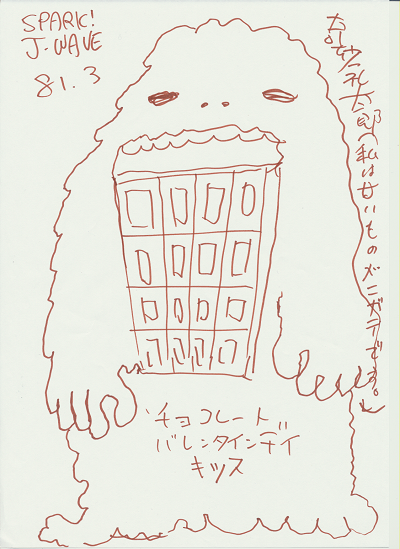 SPARK!
J-WAVE
81.3
奇妙礼太郎(私は甘いものがニガテです。)
チョコレート
バレンタインデイ
キッス